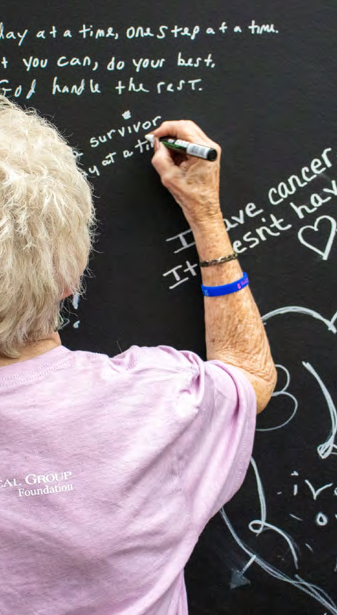 day at a time, one step at a time.
t you can, do your best,
God handle the rest.
survivor
y at a ti
I have cancer
It doesnt hav
CAL GROUP
Foundation